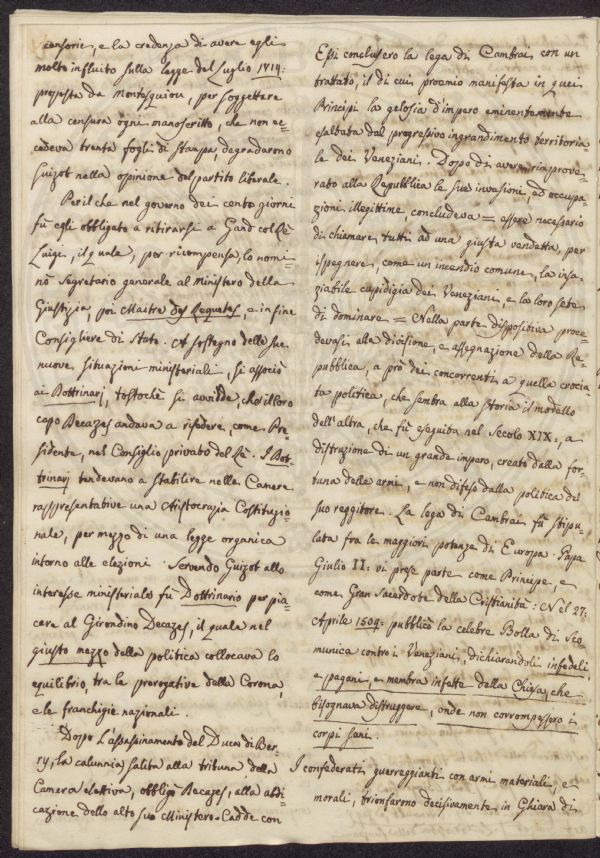 censorie, e la credenza di avere egli
molto influito sulla legge del Luglio 1814:
proposta da Montesquiou, per soggettare
alla censura ogni manoscritto, che non ec-
cedeva trenta fogli di stampa, degradarono
Guizot nella opinione del partito liberale.
Per il che nel governo dei cento giorni
fù egli obbligato a ritirarsi a Gand col Rè
Luigi, il quale, per ricompensa lo nomi-
nò Segretario generale al Ministero della
Giustizia, poi Maitre des Requetes, e in fine
Consigliere di Stato. A sostegno delle sue
nuove situazioni ministeriali, si associò
ai Dottrinarj, tostochè si avvidde, che il loro
capo Decazes andava a risedere, come Pre-
sidente, nel Consiglio privato del Rè. I Dot-
trinarj tendevano a stabilire nelle Camere
rappresentative una Aristocrazia Costituzio-
nale, per mezzo di una legge organica
intorno alle elezioni. Servendo Guizot allo
interesse ministeriale fù Dottrinario per pia-
cere al Girondino Decazes, il quale nel
giusto mezzo della politica collocava lo
equilibrio, tra le prerogative della Corona,
e le franchigie nazionali.
Dopo l'assassinamento del Duca di Ber-
ry, la calunnia salita alla tribuna della
Camera elettiva, obbligò Decazes, alla abdi-
cazione dello alto suo Ministero. Cadde con
Essi conclusero la lega di Cambrai con un
trattato, il di cui proemio manifesta in quei
Principi la gelosia d'impero eminentemente
esaltata dal progressivo ingrandimento territoria-
le dei Veneziani. Dopo di avere rimprove-
rato alla Repubblica le sue invasioni, ed occupa-
zioni illegittime concludeva = essere necessario
di chiamare tutti ad una giusta vendetta, per
ispegnere, come un incendio comune, la insa-
ziabile cupidigia dei Veneziani, e la loro sete
di dominare = Nella parte dispositiva proce-
devasi alla divisione, e assegnazione della Re-
pubblica, a prò dei concorrenti a quella crocia-
ta politica, che sembra alla Storia il modello
dell'altra, che fù eseguita nel Secolo XIX:, a
distruzione di un grande impero, creato dalla for-
tuna delle armi, e non difeso dalla politica del
suo reggitore. La lega di Cambrai fù stipu-
lata fra le maggiori potenze di Europa. Papa
Giulio II: vi prese parte come Principe, e
come Gran Sacerdote della Cristianità: Nel 27:
Aprile 1509: pubblicò la celebre Bolla di Sco-
munica contro i Veneziani, dichiarandoli infedeli,
e pagani, e membra infette della Chiesa, che
bisognava distruggere, onde non corrompessero i
corpi sani.
I confederati, guerreggianti con armi materiali, e
morali, trionfarono decisivamente in Ghiara di